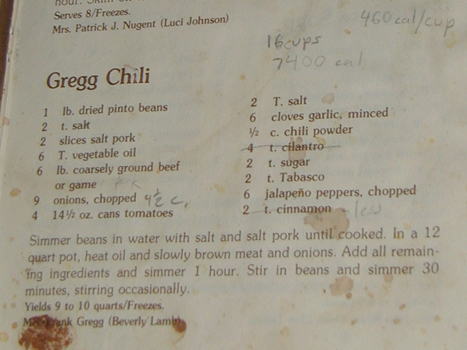 Serves 8/Freezes.
Mrs. Patrick J. Nugent (Luci Johnson)
460 cal/cup
16 cups
7400 cal
Gregg Chili
1 lb. dried pinto beans
2 t. salt
2 slices salt pork
6 T. vegetable oil
6 lb. coarsely ground beef
or game
9 onions, chopped 4½ c.
4 14½ oz. cans tomatoes
2 T. salt
6 cloves garlic, minced
½ c. chili powder
4 t. cilantro
2 t. sugar
2 t. Tabasco
6 jalapeño peppers, chopped
2 t. cinnamon
Simmer beans in water with salt and salt pork until cooked. In a 12
quart pot, heat oil and slowly brown meat and onions. Add all remain-
ing ingredients and simmer 1 hour. Stir in beans and simmer 30
minutes, stirring occasionally.
Yields 9 to 10 quarts/Freezes.
Frank Gregg (Beverly Lamb)